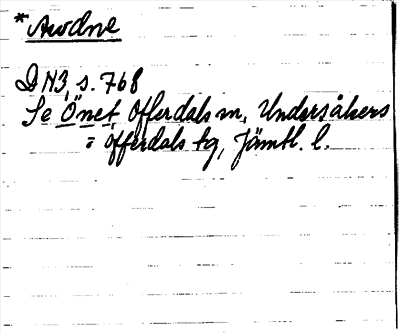 *Awdne
DN3, s. 768
Se Önet, Offerdals sn, Undersåkers
= offerdals tg, Jämtl. l.